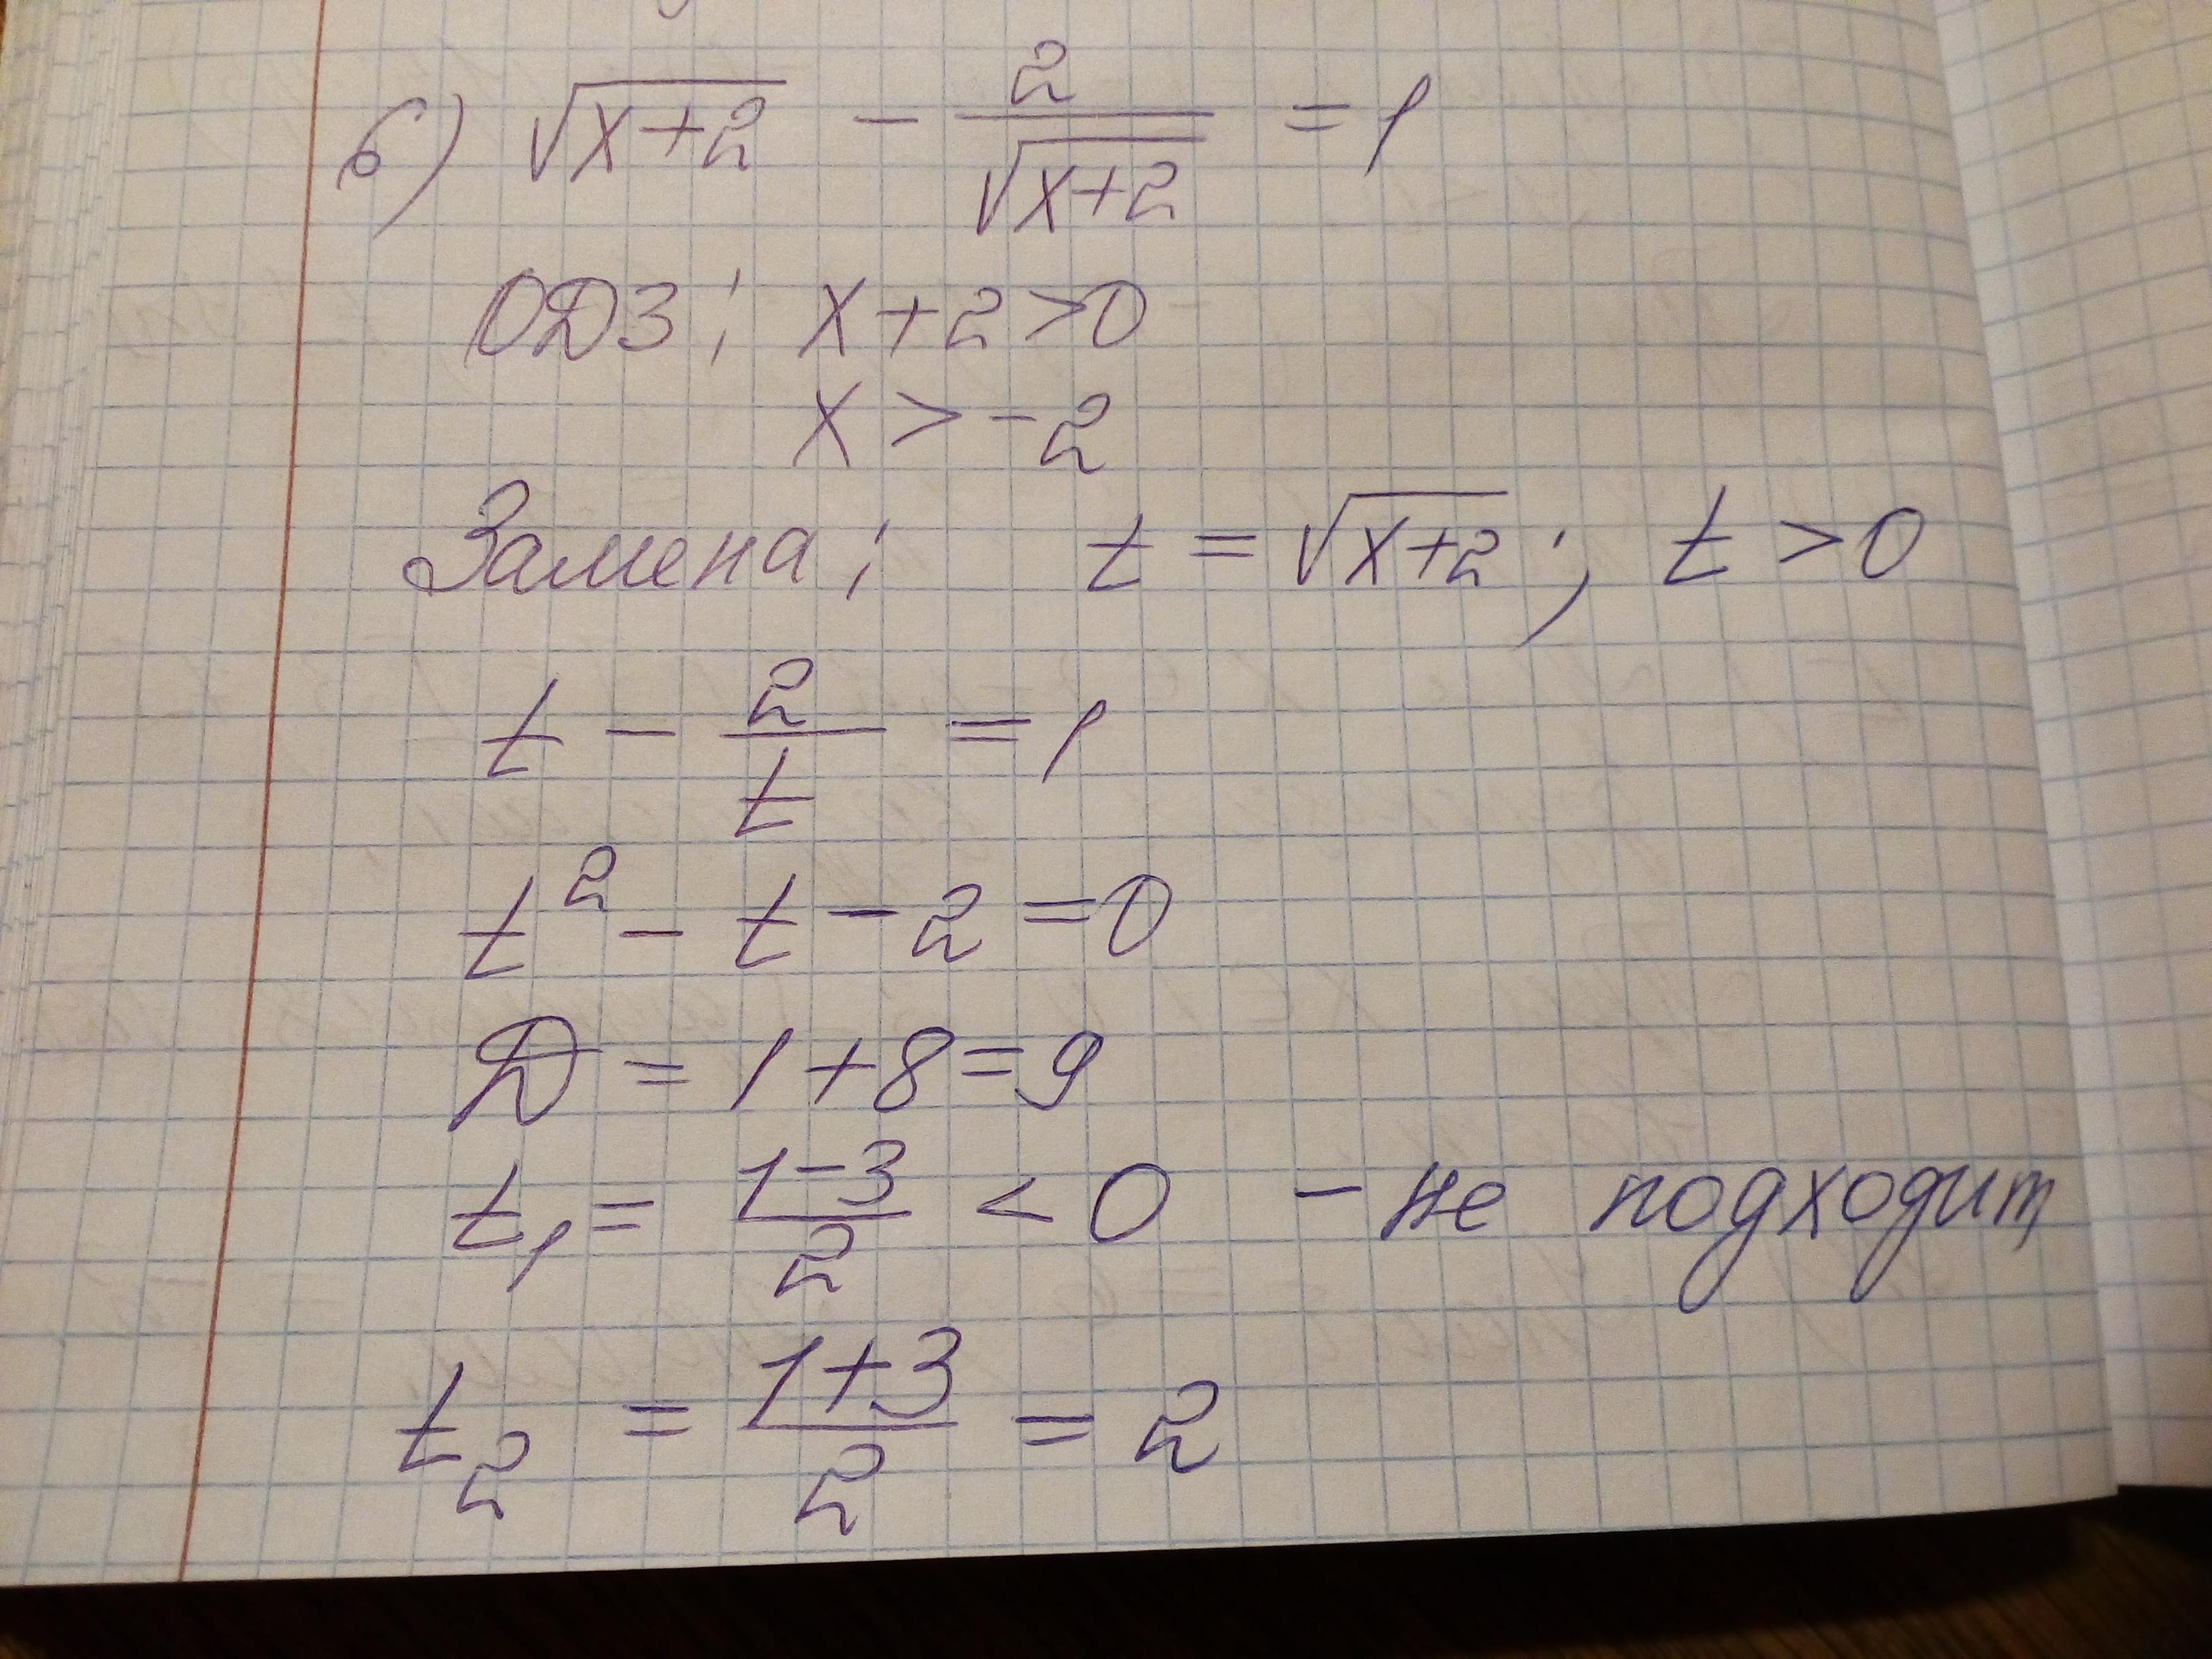 б) √(x+2) - 2/√(x+2) = 1
ОДЗ: x+2>0
x > -2
Замена: t = √(x+2); t > 0
t - 2/t = 1
t² - t - 2 = 0
D = 1+8=9
t₁ = (1-3)/2 < 0 - не подходит
t₂ = (1+3)/2 = 2